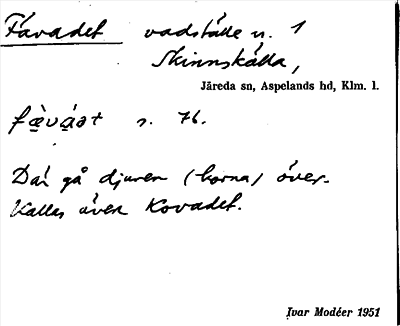 Fävadet vadställe n. 1
Skinnskälla,
Järeda sn, Aspelands hd, Klm. l.
s. 76.
Där gå djuren (korna) över.
Kallas även Kovadet.
Ivar Modéer 1951